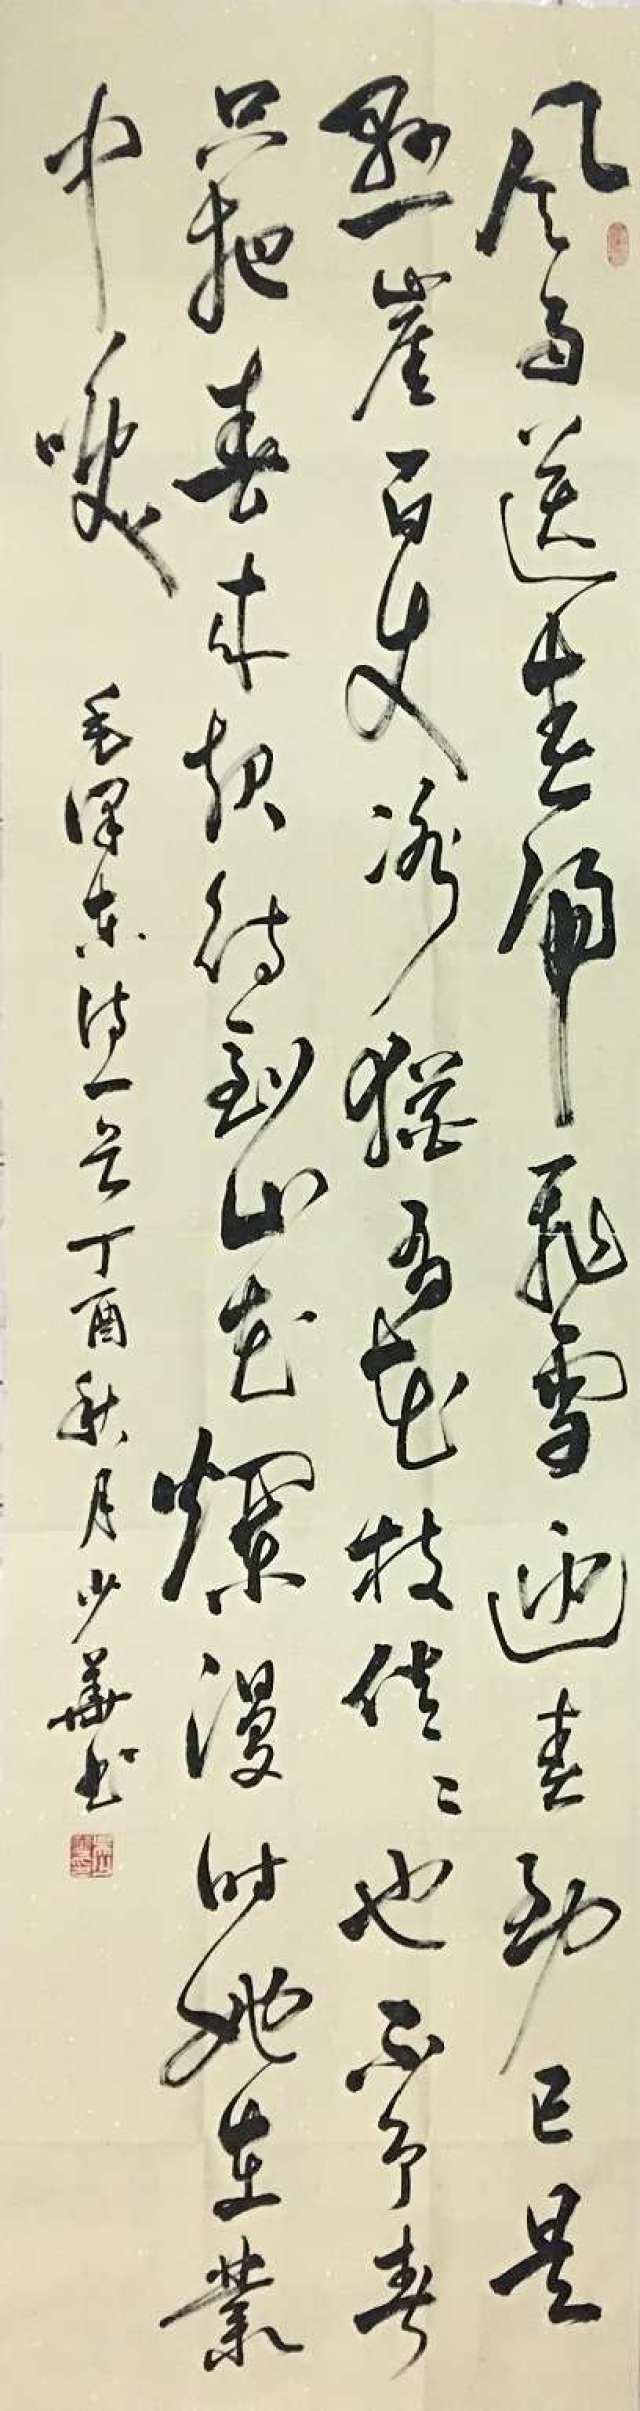 风雨送春歸飛雪迎春到已是
懸崖百丈冰猶有花枝俏〻也不争春
只把春来报待到山花爛漫时她在叢
中咲 毛泽东诗一首丁酉秋月少華书